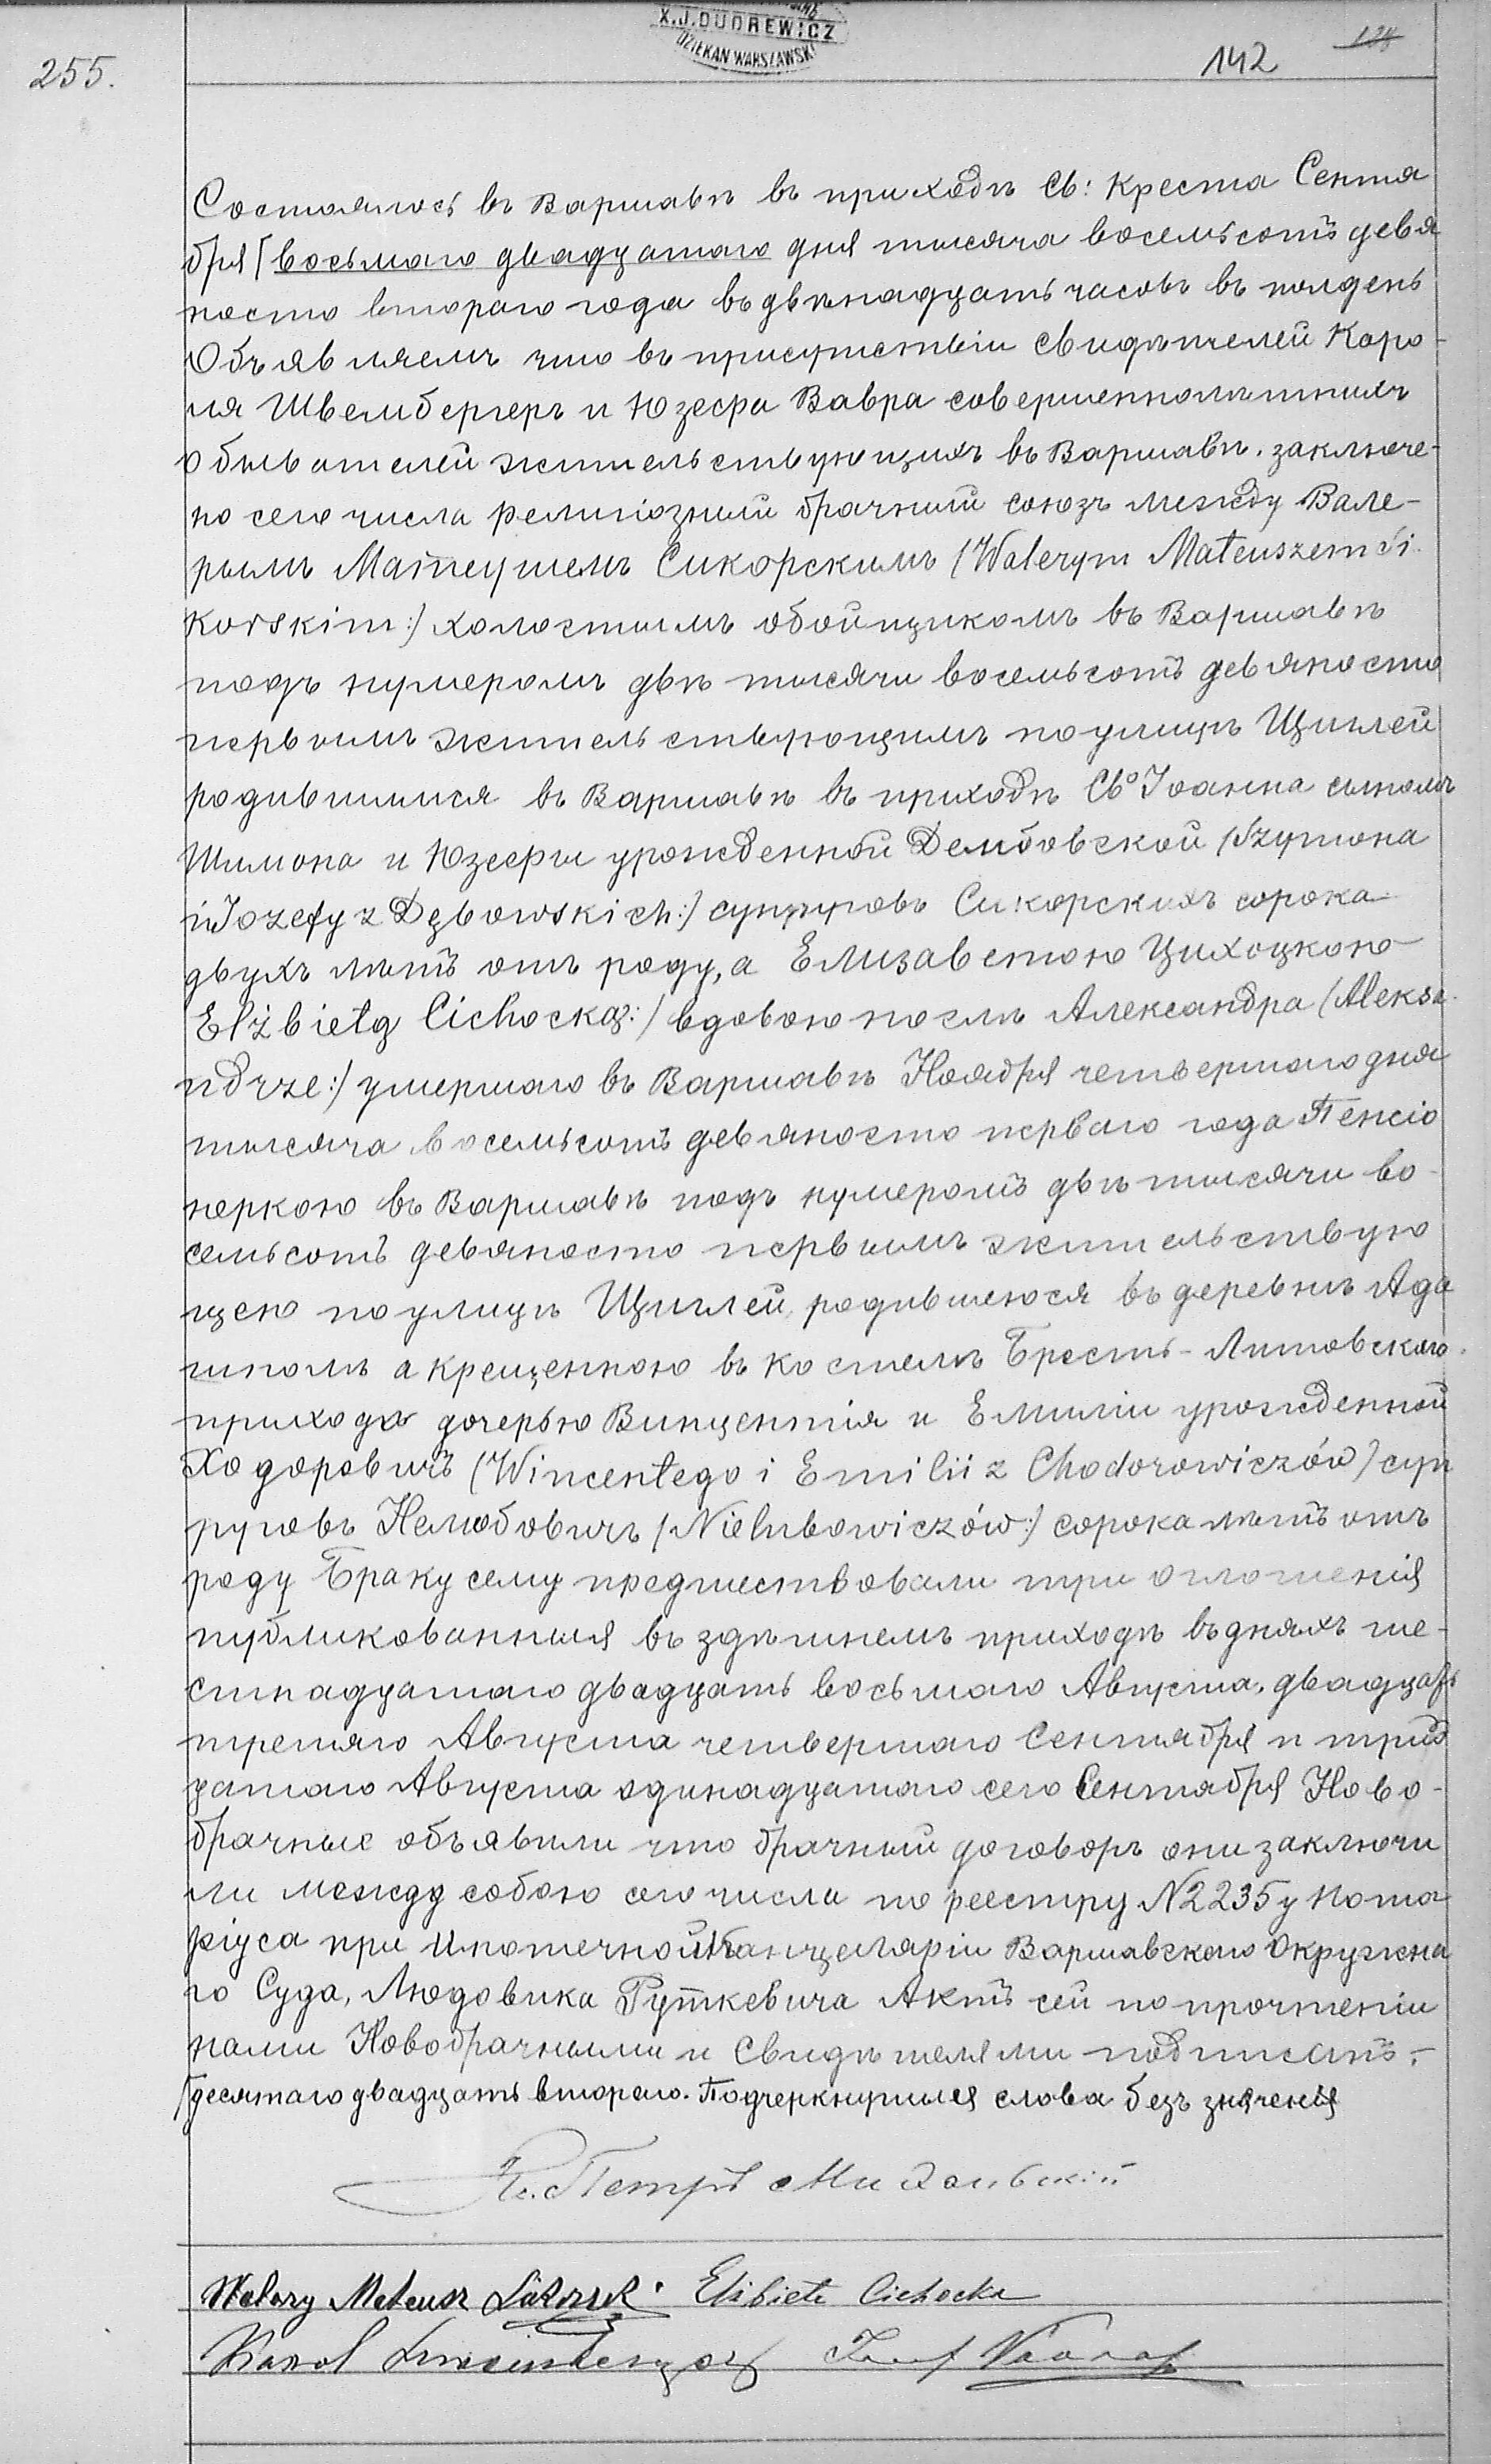 X.J.DUDREWICZ
DZIEKAN WARSZAWSKI
255.
142
Состоялось въ Варшавѣ въ приходѣ Св: Креста Сентя
бря [восьмаго двадцатаго дня тысяча восемьсотъ девя
носто втораго года въ двѣнадцать часовъ въ полдень
Объявляемъ что въ присутствіи свидѣтелей Каро-
ля Швембергеръ и Юзефа Вавра совершеннолѣтнихъ
обывателей жительствующихъ въ Варшавѣ. заключе-
но сего числа религіозный брачный союзъ между Вале-
рымъ Матеушемъ Сикорскимъ (Walerym Mateuszem Si
korskim:) холостымъ обойщикомъ въ Варшавѣ
подъ нумеромъ двѣ тысячи восемьсотъ девяносто
первымъ жительствующимъ по улицѣ Щиглей
родившимся въ Варшавѣ въ приходѣ Св⁰ Іоанна сыномъ
Шимона и Юзефы урожденной Дембовской (Szymona
i Jozefy z Dębowskich:) супруговъ Сикорскихъ сорока
двухъ лѣтъ отъ роду, а Елизаветою Цихоцкою
Elżbietą Cichocką:) вдовою послѣ Александра (Aleksa
ndrze:) умершаго въ Варшавѣ Ноября четвертаго дня
тысяча восемьсотъ девяносто перваго года Пенсіо
неркою въ Варшавѣ подъ нумеромъ двѣ тысячи во-
семьсотъ девяносто первымъ жительствую
щею по улицѣ Щиглей, родившеюся въ деревнѣ Ада
а крещенною въ костелѣ Брестъ-Литовскаго
прихода дочерью Винцентія и Емиліи урожденной
Ходоровичъ (Wincentego i Emilii z Chodorowiczów) суп
руговъ Нелюбовичъ (Nielubowiczów:) сорока лѣтъ отъ
роду Браку сему предшествовали три оглошенія
публикованныя въ здѣшнемъ приходѣ въ дняхъ ше-
стнадцатаго двадцать восьмаго Августа, двадцать
третяго Августа четвертаго Сентября и трид
цатаго Августа одинадцатаго сего Сентября Ново-
брачные объявили что брачный договоръ они заключи
ли между собою сего числа по реестру N2235 у Нота
ріуса при Ипотечной Канцеляріи Варшавскаго Окружна
го Суда, Людовика Руткевича Актъ сей по прочтеніи
нами Новобрачными и Свидѣтелями подписанъ.-
[десятаго двадцать втораго. Подчеркнутыя слова безъ значенія
Кс. Петръ
Walery Mateusz Sikorski. Elżbieta Cichocka
Karol Szwemberger Józef Wawra